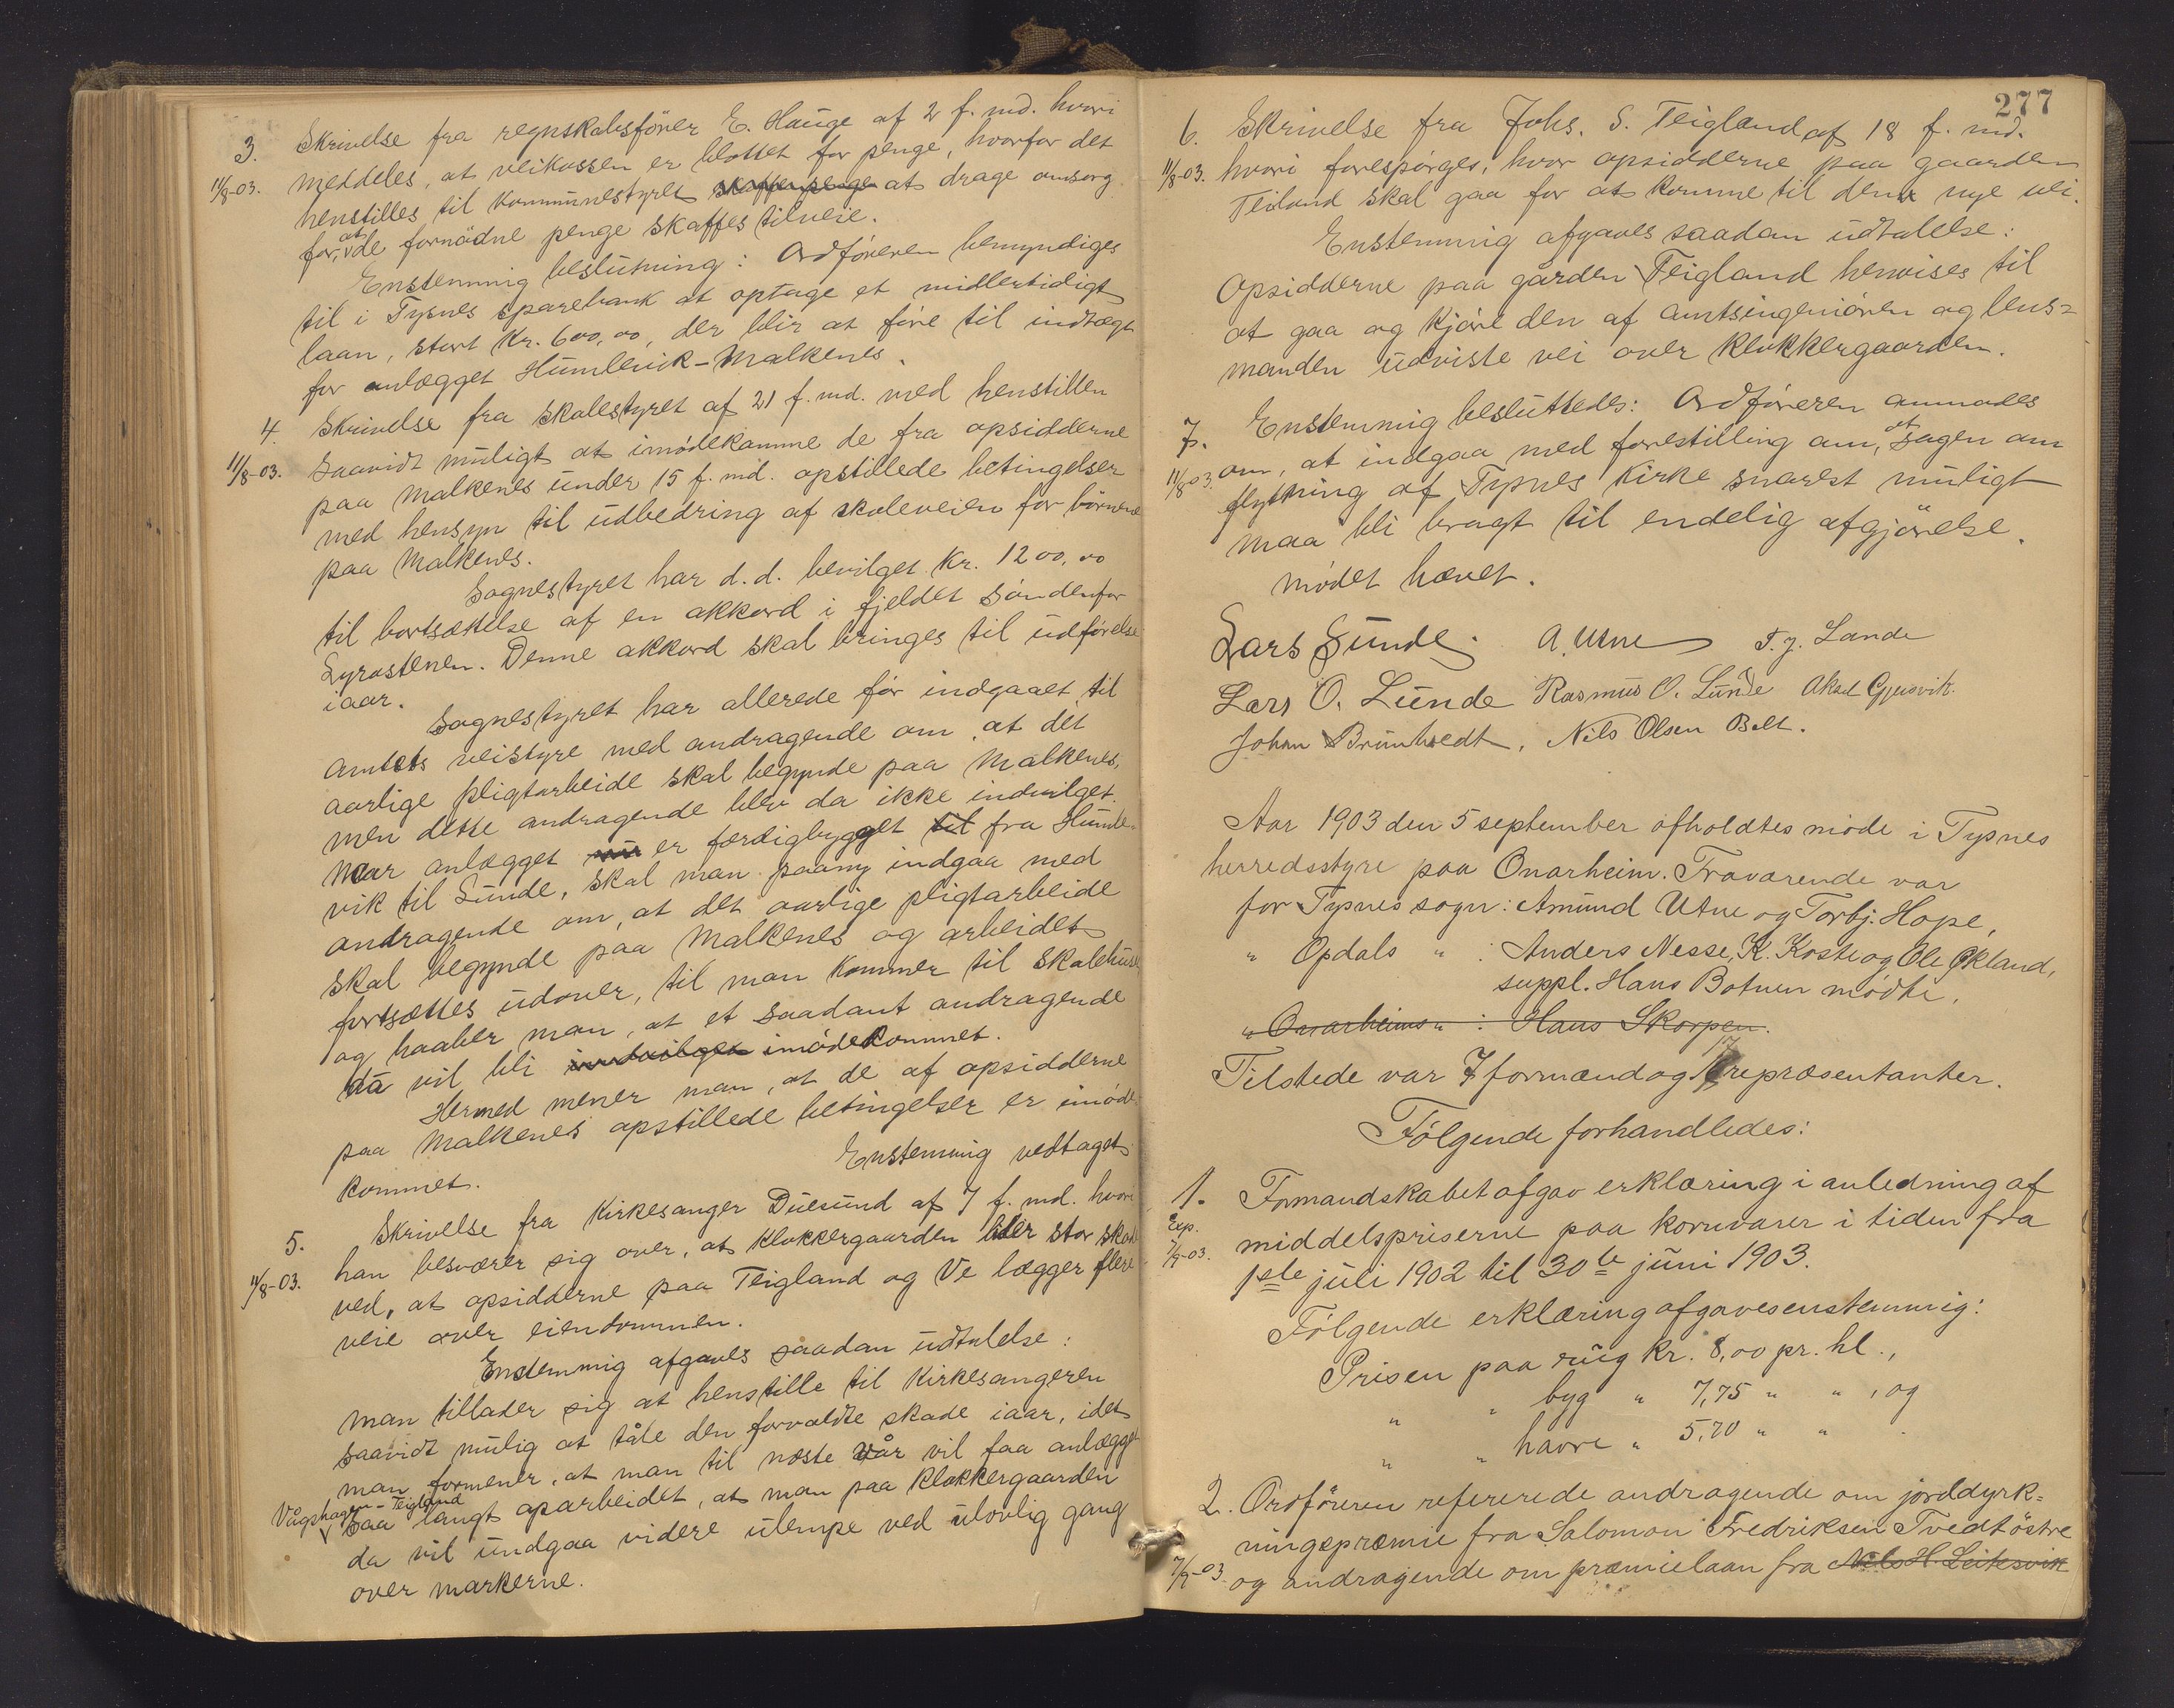 3. Skrivelse fra regnskabsfører E. Hauge af 2 f. md. hvori
11/8-03. meddeles, at veikassen er blottet for penge, hvorfor det
henstilles til Kommunestyret skaffe penge at drage omsorg
for, at de fornødne penge skaffes tilveie.
Enstemmig beslutning: Ordføreren bemyndiges
til i Tysnes sparebank at optage et midlertidigt
laan, stort Kr. 600,00, der blir at føre til indtægt
for anlægget Humlevik-Malkenes.
4. Skrivelse fra skolestyret af 21 f. md. med henstillen
11/8-03. saavidt muligt at imødekomme de fra opsidderne
paa Malkenes under 15 f. md. opstillede betingelser
med hensyn til udbedring af skoleveien for børnene
paa Malkenes.
Sognestyret har d.d. bevilget Kr. 1200,00
til bortsættelse af en akkord i fjeldet søndenfor
Lyrostenen. Denne akkord skal bringes til udførelse
iaar.
Sognestyret har allerede før indgaaet til
amtets veistyre med andragende om, at det
aarlige pligtarbeide skal begynde paa Malkenes,
men dette andragende blev da ikke indvilget.
Naar anlægget nu er færdigbygget til fra Humle-
vik til Lunde, skal man paany indgaa med
andragende om, at det aarlige pligtarbeide
skal begynde paa Malkenes og arbeidet
fortsættes udover, til man kommer til skolehuset
og haaber man, at et saadant andragende
da vil bli indvilget imødekommet.
Hermed mener man, at de af opsidderne
paa Malkenes opstillede betingelser er imøde-
kommet. Enstemmig vedtaget.
5. Skrivelse fra Kirkesanger Duesund af 7 f. md. hvori
11/8-03. han besværer sig over, at Klokkergaarden lider stor skade
ved, at opsidderne paa Teigland og Ve lægger flere
veie over eiendommen.
Enstemmig afgaves saadan udtalelse:
Man tillader sig at henstille til Kirkesangeren
saavidt mulig at tåle den forvoldte skade iaar, idet
man formener, at man til næste vår vil faa anlægget
Vågshagen-Teigland
saa langt oparbeidet, at man paa Klokkergaarden
da vil undgaa videre ulempe ved ulovlig gang
over markerne.
277
6. Skrivelse fra Johs. S. Teigland af 18 f. md.
11/8-03. hvori forespørges, hvor opsidderne paa gaarden
Teiland skal gaa for at komme til den nye vei.
Enstemmig afgaves saadan udtalelse:
Opsidderne paa gården Teigland henvises til
at gaa og kjøre den af amtsingeniøren og lens-
manden udviste vei over Klokkergaarden.
7. Enstemmig besluttedes: Ordføreren anmodes
11/8-03. om, at indgaa med forestilling om, at sagen om
flytning af Tysnes Kirke snarest muligt
maa bli bragt til endelig afgjørelse.
Mødet hævet.
Lars Sunde. A. Utne T. J. Lande
Lars O. Lunde Rasmus O. Lunde Aksel Gjersvik.
Johan Bruntvedt, Nils Olsen Belt.
Aar 1903 den 5 september afholdtes møde i Tysnes
herredsstyre paa Onarheim. Fraværende var
for Tysnes sogn: Amund Utne og Torbj. Hope,
" Opdals " : Anders Nesse, K. Koste og Ole Økland,
suppl. Hans Botnen mødte.
" Onarheims " : Hans Skorpen.
Tilstede var 7 formænd og 17 repræsentanter.
Følgende forhandledes:
1. Formandskabet afgav erklæring i anledning af
Exp. middelspriserne paa kornvarer i tiden fra
7/9-03. 1ste juli 1902 til 30te juni 1903.
Følgende erklæring afgaves enstemmig:
Prisen paa rug Kr. 8,00 pr. hl.,
" " byg " 7,75 " " , og
" " havre " 5,70 " " .
2. Ordføreren refererede andragende om jorddyrk-
ningspræmie fra Salomon Fredriksen Tvedt østre
7/9-03. og andragende om præmielaan fra Nils H. Leiksvik